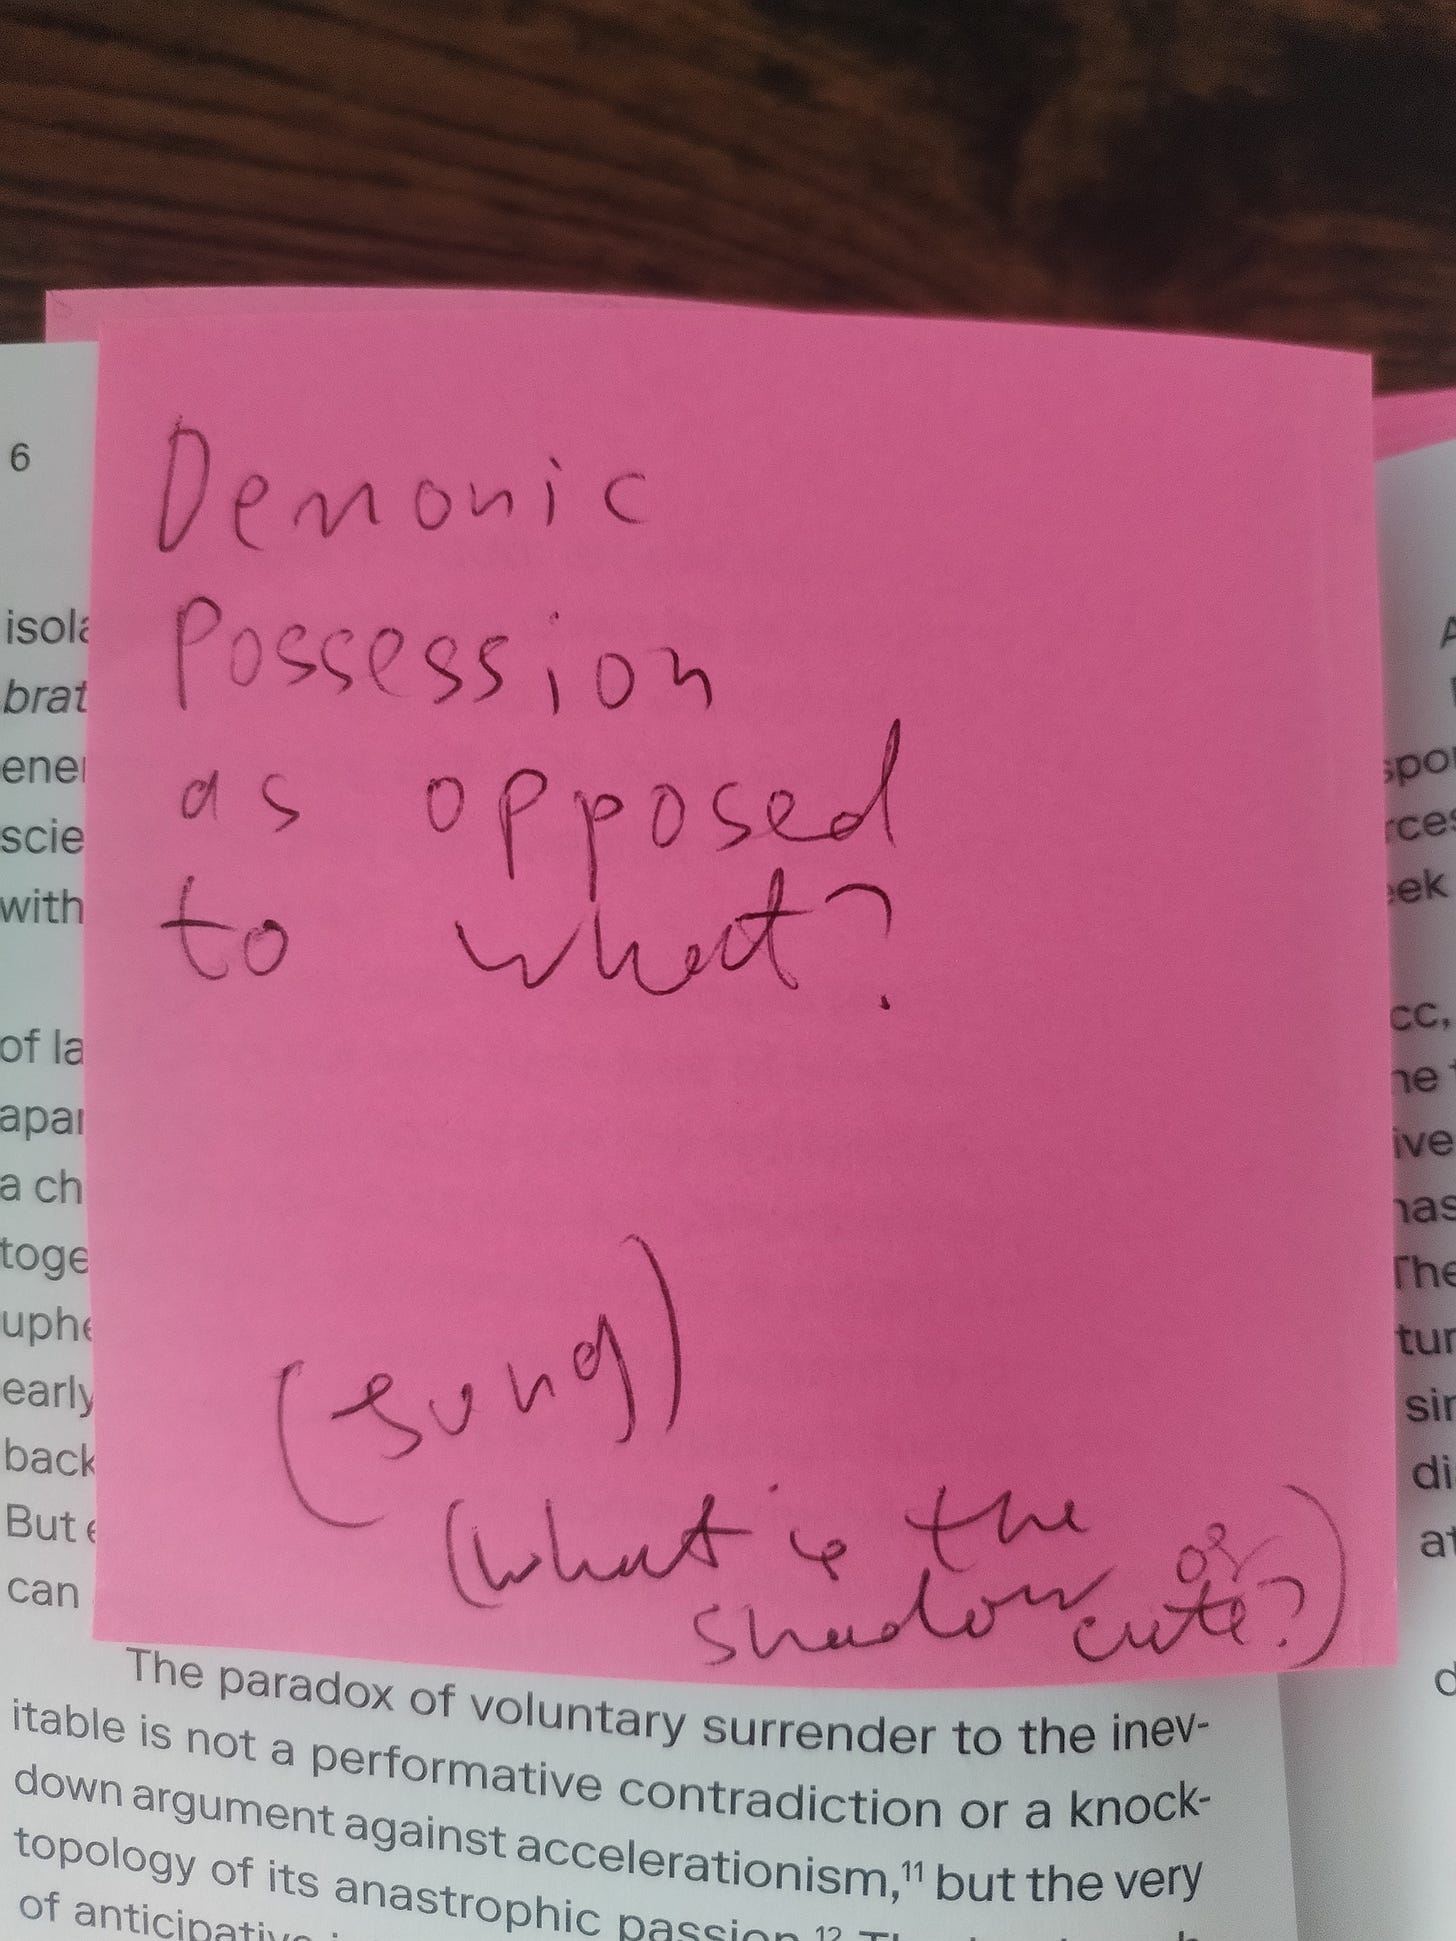 6
isola
brat
ener
scie
with
of la
apar
a ch
toge
uphe
early
back
But e
can
Demonic
Possession
as opposed
to what?
(Jung)
(What is the
shadow of
cute?)
The paradox of voluntary surrender to the inev-
itable is not a performative contradiction or a knock-
down argument against accelerationism,11 but the very
topology of its anastrophic passion.12 Th
of anticipative
A
spor
rces
eek
cc,
ne t
ive
has
The
tur
sir
di
at
d